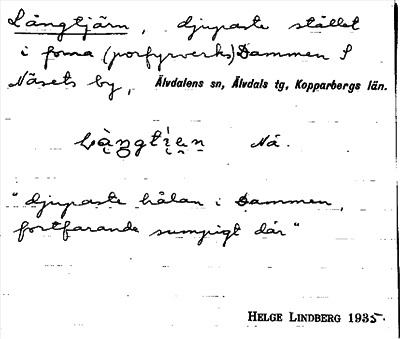 Långtjärn, djupaste stället
i forna (porfyrverks)Dammen S
Näsets by, Älvdalens sn, Älvdals tg, Kopparbergs län.
Nä.
"djupaste hålan i Dammen,
fortfarande sumpigt där"
HELGE LINDBERG 1935.